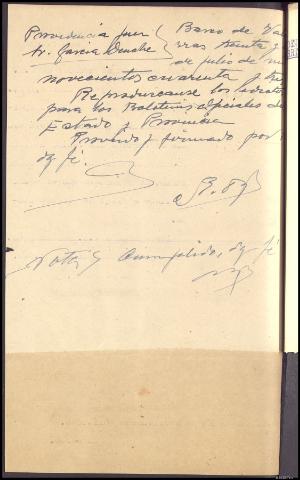 Providencia Juez Barco de Val
Sr. García
de julio de mil
novecientos cuarenta y
Reprodúzcanse los edictos
para los Boletines oficiales del
Estado y Provincia
Proveído y firmado por
doy fé.
Nota/ Cumplido, doy fé